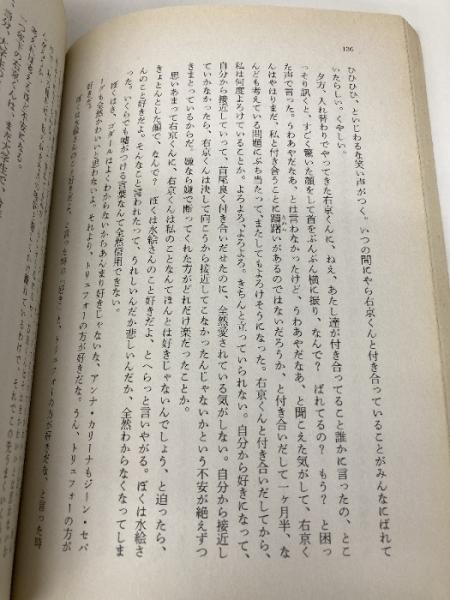 126
ひひひ、といじわるな笑い声がつく。いつの間にやら右京くんと付き合っていることがみんなにばれて
いたらしい。くやしい。
夕方、入れ替わりでやってきた右京くんに、ねえ、あたし達が付き合ってること誰かに言ったの、とこ
っそり訊くと、すごく驚いた顔をして首をぶんぶん横に振り、なんで？ ばれてるの？ もう？ と困っ
た声で言った。うわあやだなあ、とは言わなかったけど、うわあやだなあ、と聞こえた気がして、右京く
んはやはりまだ、私と付き合うことに躊躇いがあるのではないだろうか、と付き合いだして一ヶ月半、な
んども考えている問題にぶち当たって、またしてもよろけそうになった。右京くんと付き合いだしてから、
私は何度よろけていることか。よろよろ。よろよろ。きちんと立っていられない。自分から好きになって、
自分から接近していって、首尾良く付き合いだせたのに、全然愛されている気がしない。自分から接近し
ていかなかったら、右京くんは決して向こうから接近してこなかったんじゃないかという不安が絶えずつ
きまとっているからだ。嫌なら嫌で断ってくれた方がどれだけ楽だったことか。
思いあまって右京くんに、右京くんは私のことなんてほんとは好きじゃないんでしょう、と迫ったら、
きょとんとした顔で、なんで？ ぼくは水絵さんのこと好きだよ、とへらっと言いやがる。ぼくは水絵さ
んのこと好きだよ。そんなこと言われたって、うれしいんだか悲しいんだか、全然わからなくなってしま
った。いくらでも嘘がつける言葉なんて全然信用できない。
ぼくはさ、ゴダールはよくわからないからあんまり好きじゃないな、アンナ・カリーナもジーン・セバ
ーグも全然かわいいと思わないよ、それより、トリュフォーの方が好きだな。うん、トリュフォーの方が
好きだ。